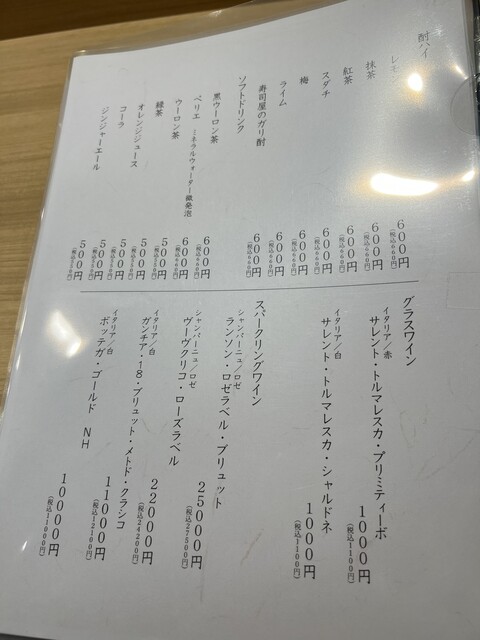 酎ハイ
レモ
600円
(税込660円)
抹茶
600円
(税込660円)
紅茶
600円
(税込660円)
スダチ
600円
(税込660円)
梅
600円
(税込660円)
ライム
600円
(税込660円)
寿司屋のガリ酎
600円
(税込660円)
ソフトドリンク
黒ウーロン茶
600円
(税込660円)
ペリエ ミネラルウォーター微発泡
600円
(税込660円)
ウーロン茶
500円
(税込550円)
緑茶
500円
(税込550円)
オレンジジュース
500円
(税込550円)
コーラ
500円
(税込550円)
ジンジャーエール
500円
(税込550円)
グラスワイン
イタリア/赤
サレント・トルマレスカ・プリミティーボ
1000円
(税込1100円)
イタリア/白
サレント・トルマレスカ・シャルドネ
1000円
(税込1100円)
スパークリングワイン
シャンパーニュ/ロゼ
ランソン・ロゼラベル・ブリュット
25000円
(税込27500円)
シャンパーニュ/ロゼ
ヴーヴクリコ・ローズラベル
22000円
(税込24200円)
イタリア/白
ガンチア・18・ブリュット・メトド・クラシコ
11000円
(税込12100円)
イタリア/白
ボッテガ・ゴールド NH
10000円
(税込11000円)